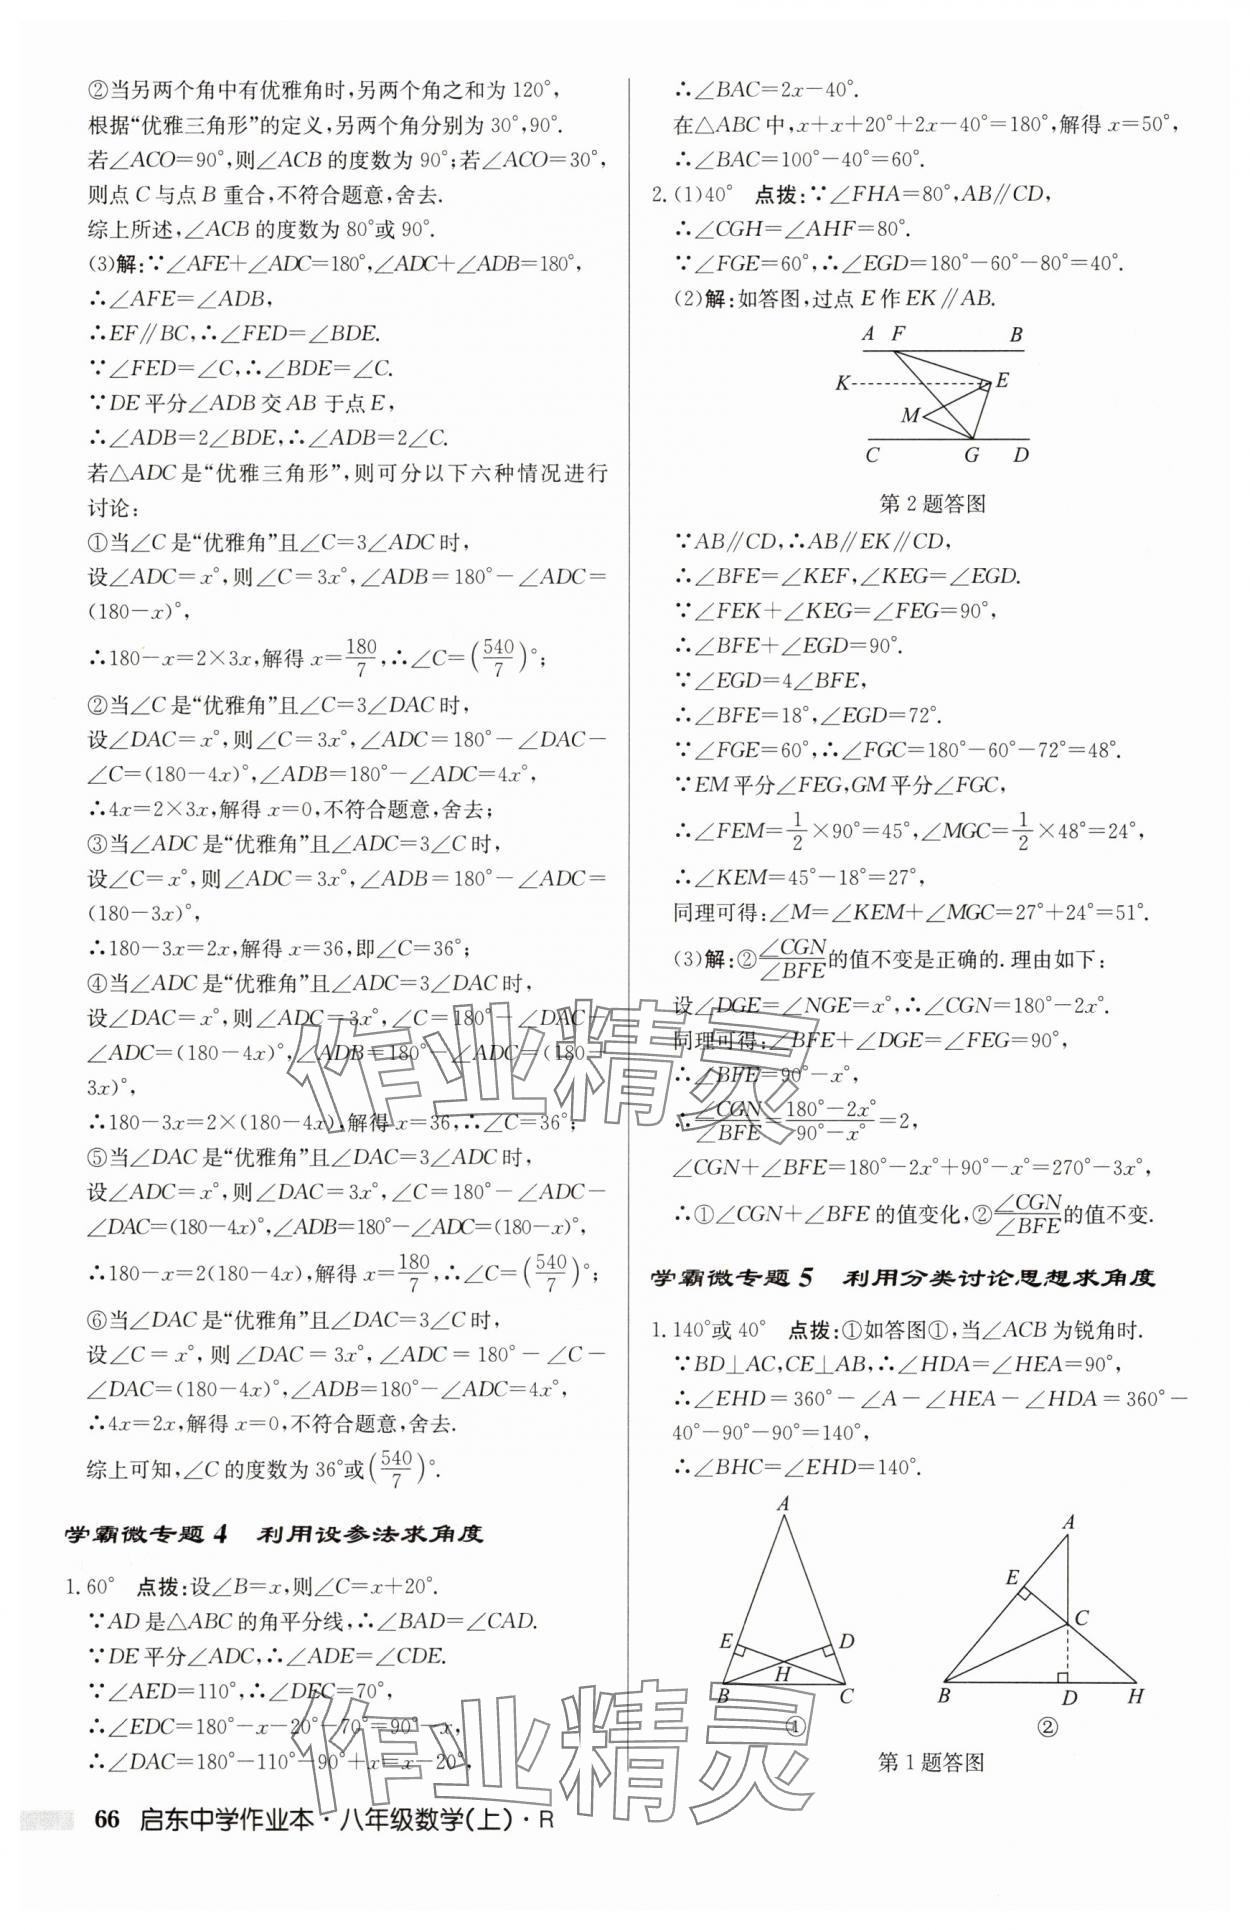 ②当另两个角中有优雅角时,另两个角之和为120°,
根据“优雅三角形”的定义,另两个角分别为30°,90°.
若∠ACO=90°,则∠ACB的度数为90°;若∠ACO=30°,
则点C与点B重合,不符合题意,舍去.
综上所述,∠ACB的度数为80°或90°.
(3)解:∵∠AFE+∠ADC=180°,∠ADC+∠ADB=180°,
∴∠AFE=∠ADB,
∴EF∥BC,∴∠FED=∠BDE.
∵∠FED=∠C,∴∠BDE=∠C.
∵DE平分∠ADB交AB于点E,
∴∠ADB=2∠BDE,∴∠ADB=2∠C.
若△ADC是“优雅三角形”,则可分以下六种情况进行
讨论:
①当∠C是“优雅角”且∠C=3∠ADC时,
设∠ADC=x°,则∠C=3x°,∠ADB=180°-∠ADC=
(180-x)°,
∴180-x=2×3x,解得x=180/7,∴∠C=(540/7)°;
②当∠C是“优雅角”且∠C=3∠DAC时,
设∠DAC=x°,则∠C=3x°,∠ADC=180°-∠DAC-
∠C=(180-4x)°,∠ADB=180°-∠ADC=4x°,
∴4x=2×3x,解得x=0,不符合题意,舍去;
③当∠ADC是“优雅角”且∠ADC=3∠C时,
设∠C=x°,则∠ADC=3x°,∠ADB=180°-∠ADC=
(180-3x)°,
∴180-3x=2x,解得x=36,即∠C=36°;
④当∠ADC是“优雅角”且∠ADC=3∠DAC时,
设∠DAC=x°,则∠ADC=3x°,∠C=180°-∠DAC-
∠ADC=(180-4x)°,∠ADB=180°-∠ADC=(180-
3x)°,
∴180-3x=2×(180-4x),解得x=36,∴∠C=36°;
⑤当∠DAC是“优雅角”且∠DAC=3∠ADC时,
设∠ADC=x°,则∠DAC=3x°,∠C=180°-∠ADC-
∠DAC=(180-4x)°,∠ADB=180°-∠ADC=(180-x)°,
∴180-x=2(180-4x),解得x=180/7,∴∠C=(540/7)°;
⑥当∠DAC是“优雅角”且∠DAC=3∠C时,
设∠C=x°,则∠DAC=3x°,∠ADC=180°-∠C-
∠DAC=(180-4x)°,∠ADB=180°-∠ADC=4x°,
∴4x=2x,解得x=0,不符合题意,舍去.
综上可知,∠C的度数为36°或(540/7)°.
学霸微专题4 利用设参法求角度
1.60° 点拨:设∠B=x,则∠C=x+20°.
∵AD是△ABC的角平分线,∴∠BAD=∠CAD.
∵DE平分∠ADC,∴∠ADE=∠CDE.
∵∠AED=110°,∴∠DEC=70°,
∴∠EDC=180°-x-20°-70°=90°-x,
∴∠DAC=180°-110°-90°+x=x-20°,
∴∠BAC=2x-40°.
在△ABC中,x+x+20°+2x-40°=180°,解得x=50°,
∴∠BAC=100°-40°=60°.
2.(1)40° 点拨:∵∠FHA=80°,AB∥CD,
∴∠CGH=∠AHF=80°.
∵∠FGE=60°,∴∠EGD=180°-60°-80°=40°.
(2)解:如答图,过点E作EK∥AB.
A F B
K E
M
C G D
第2题答图
∵AB∥CD,∴AB∥EK∥CD,
∴∠BFE=∠KEF,∠KEG=∠EGD.
∵∠FEK+∠KEG=∠FEG=90°,
∴∠BFE+∠EGD=90°.
∵∠EGD=4∠BFE,
∴∠BFE=18°,∠EGD=72°.
∵∠FGE=60°,∴∠FGC=180°-60°-72°=48°.
∵EM平分∠FEG,GM平分∠FGC,
∴∠FEM=1/2×90°=45°,∠MGC=1/2×48°=24°,
∴∠KEM=45°-18°=27°,
同理可得:∠M=∠KEM+∠MGC=27°+24°=51°.
(3)解:②∠CGN/∠BFE的值不变是正确的.理由如下:
设∠DGE=∠NGE=x°,∴∠CGN=180°-2x°.
同理可得:∠BFE+∠DGE=∠FEG=90°,
∴∠BFE=90°-x°,
∴∠CGN/∠BFE=(180°-2x°)/(90°-x°)=2,
∠CGN+∠BFE=180°-2x°+90°-x°=270°-3x°,
∴①∠CGN+∠BFE的值变化,②∠CGN/∠BFE的值不变.
学霸微专题5 利用分类讨论思想求角度
1.140°或40° 点拨:①如答图①,当∠ACB为锐角时.
∵BD⊥AC,CE⊥AB,∴∠HDA=∠HEA=90°,
∴∠EHD=360°-∠A-∠HEA-∠HDA=360°-
40°-90°-90°=140°,
∴∠BHC=∠EHD=140°.
A
E D
H
B C
①
A
E
C
B D H
②
第1题答图
66 启东中学作业本·八年级数学(上)·R
作业精灵
作业精灵